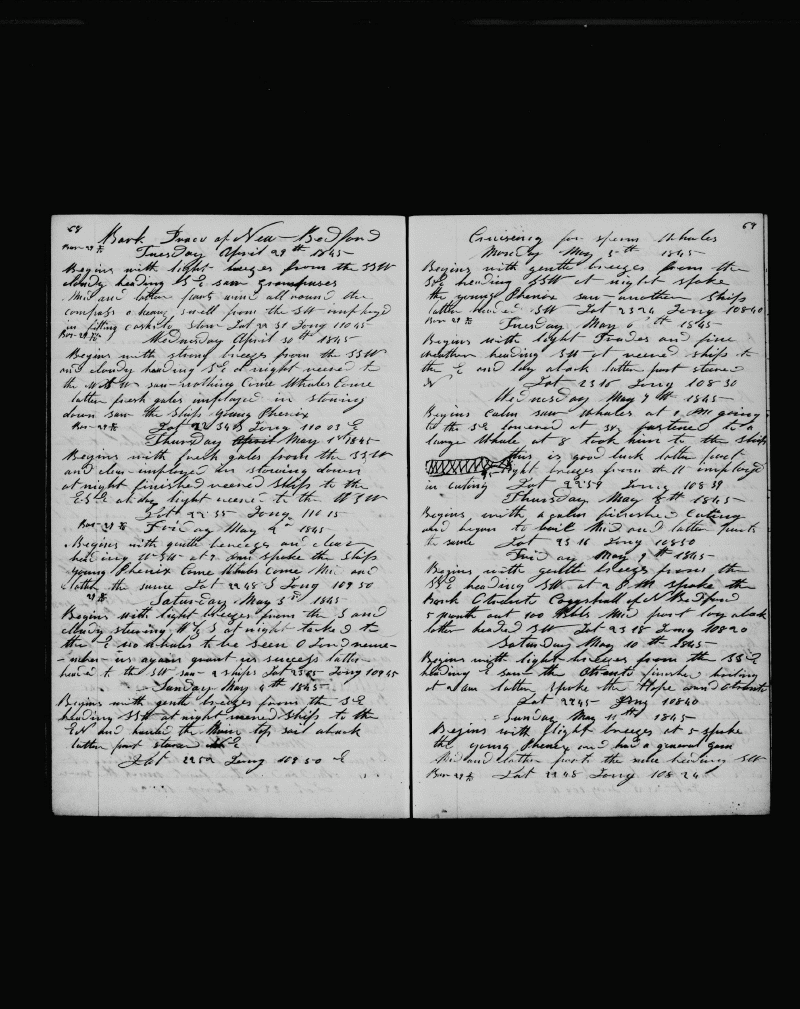 68
Bark Draco of New-Bedford
Bar 29
Tuesday April 29th 1845
Begins with light breezes from the SSW
cloudy heading SE saw grampuses
Mid and latter parts wind all round the
compass a heavy swell from the SW imployed
in fitting casks to stow Lat 22 31 Long 110 45
Bar 29
Wednesday April 30th 1845
Begins with strong breezes from the SSW
and cloudy heading SE at night veered to
the W saw nothing Come Whales Come
latter fresh gales imployed in stowing
down saw the Ship Young Phenix
Bar 29 Lat 22 34 S Long 110 03 E
Thursday April May 1st 1845
Begins with fresh gales from the SSW
and clear imployed in stowing down
at night finished veered ships to the
ESE at day light veered to the WSW
Lat 22 35 Long 110 15
Bar 29
Friday May 2d 1845
Begins with gentle breezes and clear
heading WSW at 7 spoke the ship
young Phenix Come Whales Come Mid and
latter the same Lat 22 48 S Long 109 50
29
Saturday May 3rd 1845
Begins with light breezes from the S and
cloudy steering W by S at night tacked to
the E no whales to be seen O Lord reme-
-mber us again grant us success latter
headed to the SW saw 2 ships Lat 23 05 Long 109 45
Sunday May 4th 1845
Begins with gentle breezes from the SE
heading SSW at night veered ship to the
EN and hauled the Main top sail aback
latter part steered E
Lat 22 52 Long 109 50 E
69
Cruiseing for sperm Whales
Monday May 5th 1845
Begins with gentle breezes from the
SE heading SSW at night spoke
the young Phenix saw another Ship
latter headed SW Lat 23 24 Long 108 40
Bar 29
Tuesday May 6th 1845
Begins with light Trades and fine
weather heading SW at veered ships to
the E and lay aback latter part steered
N Lat 23 15 Long 108 30
Wednesday May 7th 1845
Begins calm saw Whales at 1 PM going
to the SE lowered at 3 fastened to a
large Whale at 8 took him to the Ship
this is good luck latter part
light breezes from the imployed
in cuting Lat 22 59 Long 108 39
Thursday May 8th 1845
Begins with a calm finished Cuting
and began to boil Mid and latter parts
the same Lat 23 16 Long 108 50
Friday May 9th 1845
Begins with gentle breezes from the
SSE heading SW at 2 P M spoke the
Bark Coggshall of N Bedford
5 month out 100 Bbls Mid part lay aback
latter headed SW Lat 23 18 Long 108 20
Saturday May 10th 1845
Begins with light breezes from the SSE
heading E saw the finished boiling
at 2 am latter spoke the Hope and
Lat 22 45 Long 108 40
Sunday May 11th 1845
Begins with light breezes at 5 spoke
the young Phenix and had a general gam
Mid and latter parts the same heading SW
Bar 29 Lat 22 48 Long 108 24